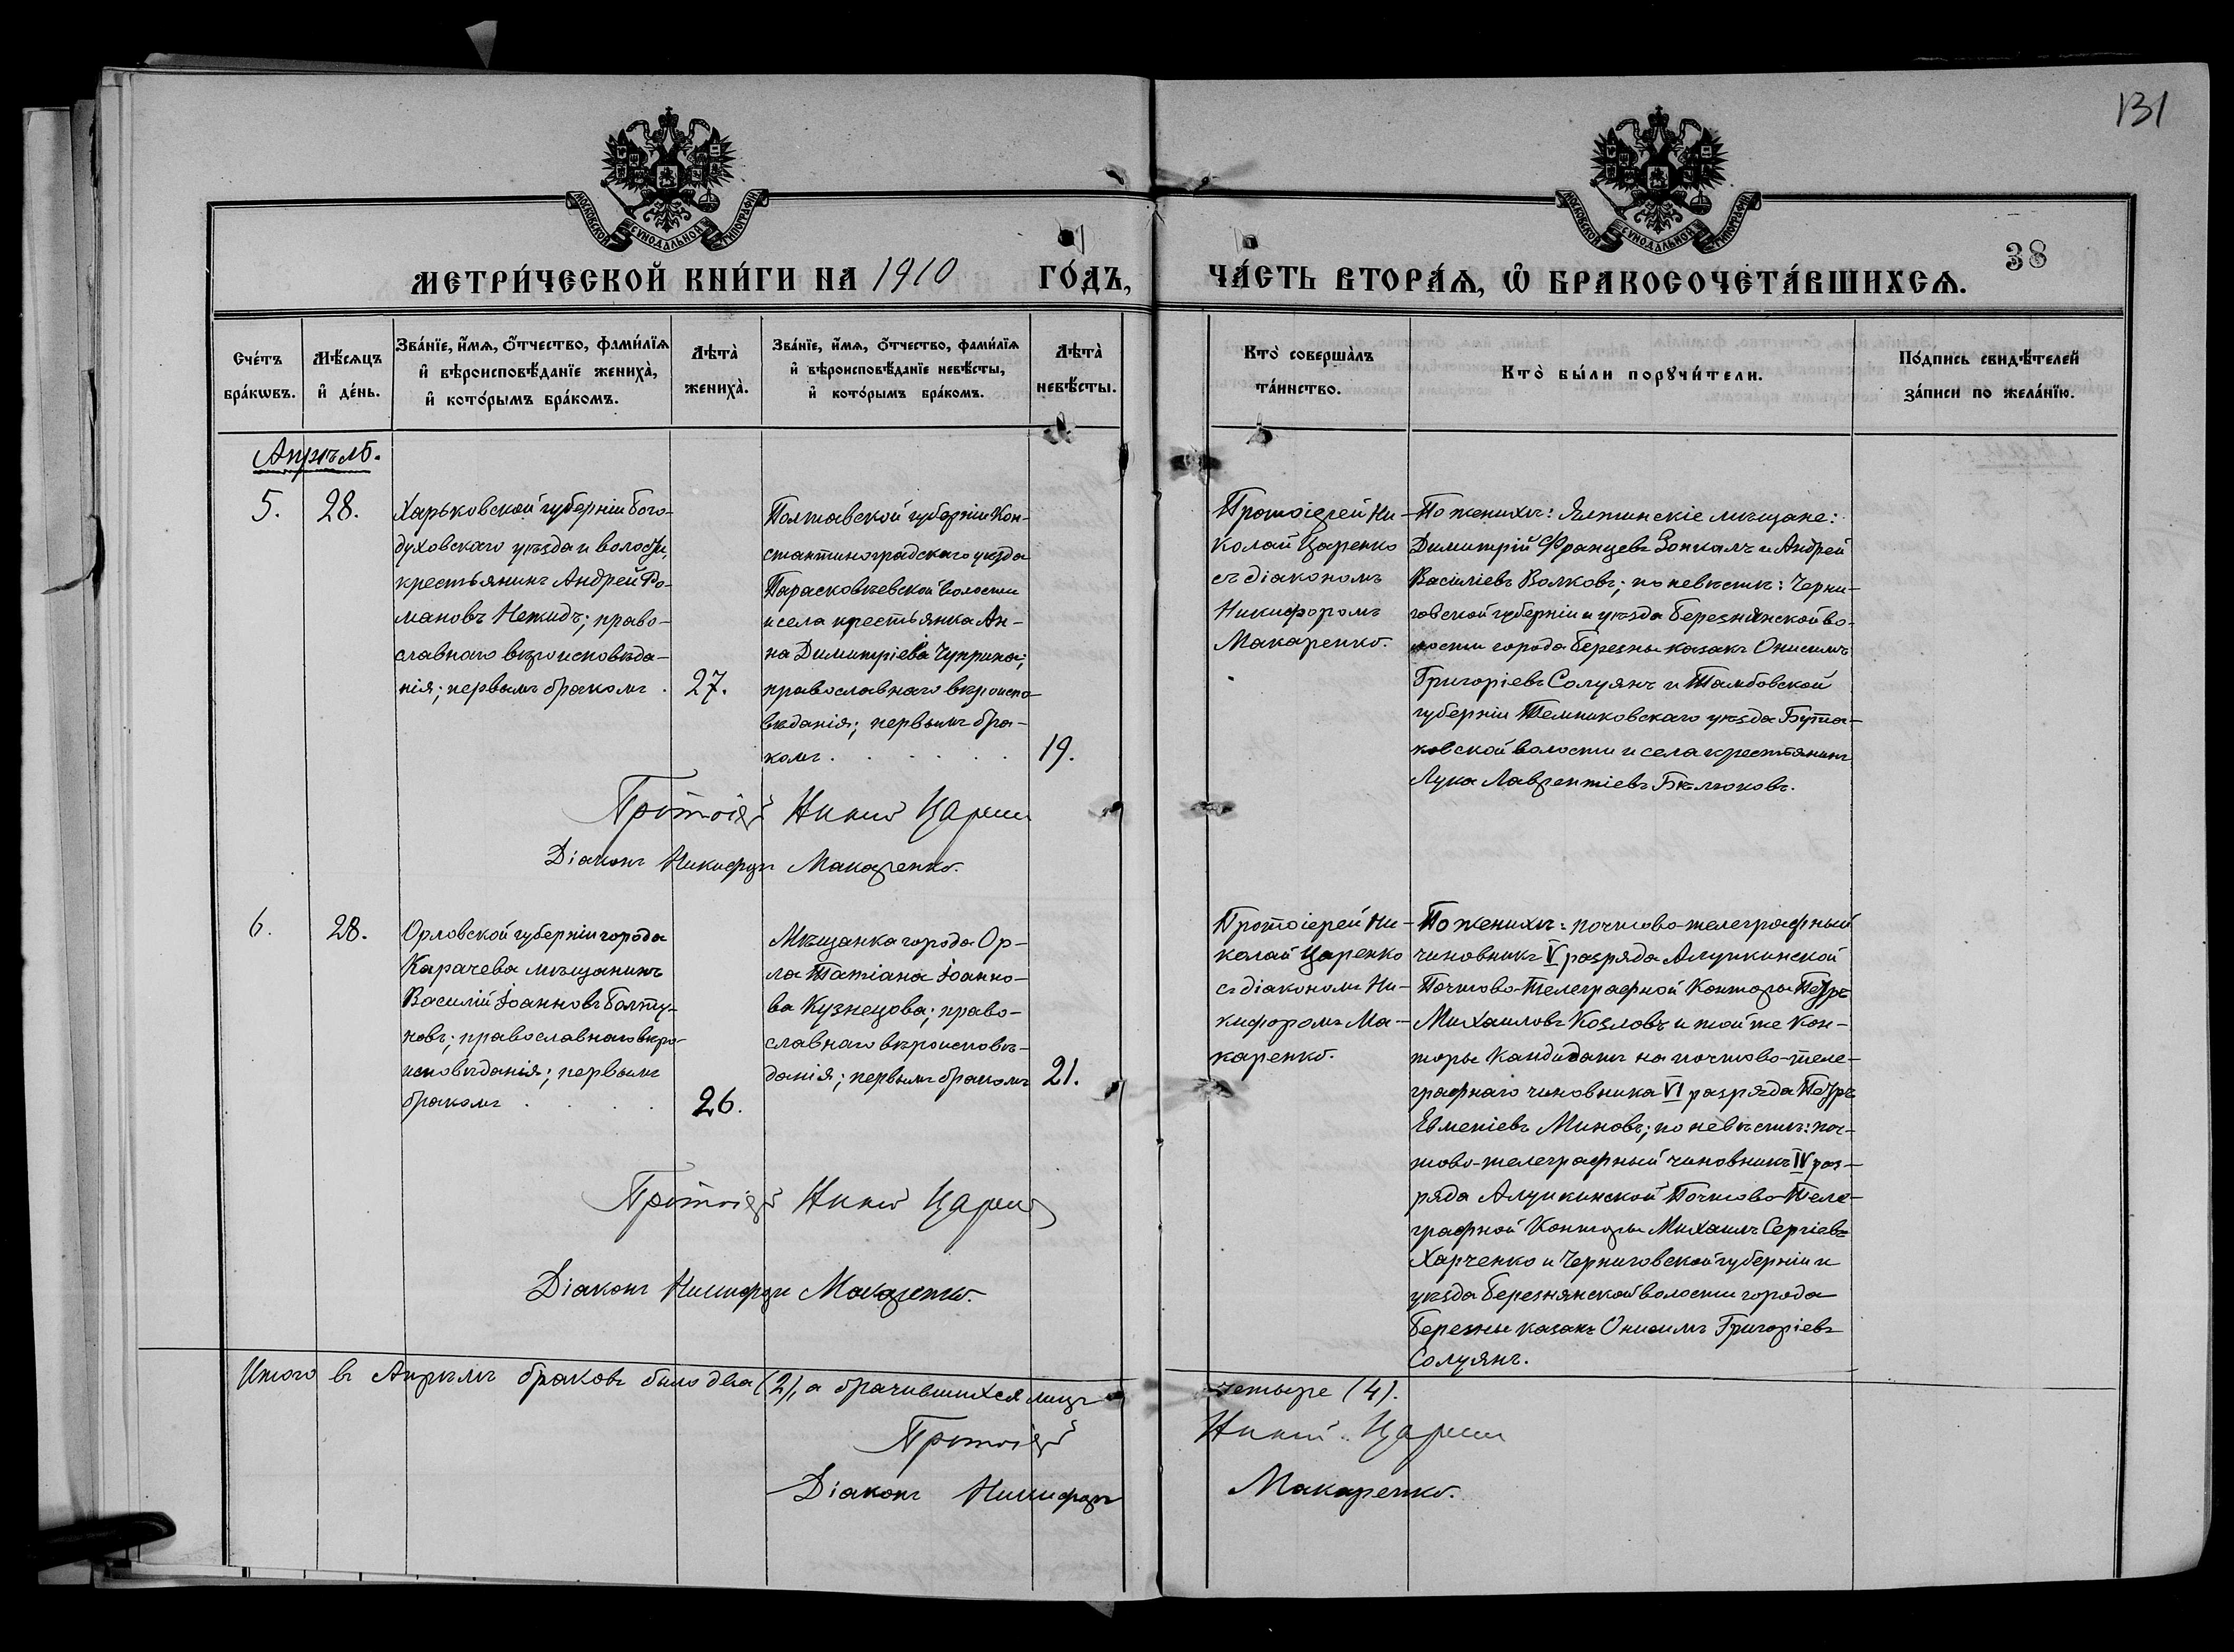 131
МОСКОВСКОЙ СУНОДАЛЬНОЙ ТИПОГРАФІИ
МОСКОВСКОЙ СУНОДАЛЬНОЙ ТИПОГРАФІИ
38
МЕТРИ́ЧЕСКОЙ КНИ́ГИ НА 1910 ГО́ДЪ,
ЧА́СТЬ ВТОРА́Ѧ, Ѽ БРАКОСОЧЕТА́ВШИХСѦ.
Сче́тъ бра́кѡвъ.
Мѣ́сяцъ и҆ де́нь.
Зва́нїе, и҆́мѧ, ѻ҆́тчество, фами́лїѧ
и҆ вѣроисповѣ́данїе жениха̀,
и҆ кото́рымъ бра́комъ.
Лѣта̀ жениха̀.
Зва́нїе, и҆́мѧ, ѻ҆́тчество, фами́лїѧ
и҆ вѣроисповѣ́данїе невѣ́сты,
и҆ кото́рымъ бра́комъ.
Лѣта̀ невѣ́сты.
Кто̀ соверша̀лъ та́инство.
Кто̀ бы́ли порꙋчи́тели.
По́дпись свидѣ́телей за́писи по жела́нїю.
Апрѣль.
5.
28.
Харьковской губерніи Бого-
духовскаго уѣзда и волости,
крестьянинъ Андрей Ро-
мановъ Нежидъ; право-
славнаго вѣроисповѣда-
нія; первымъ бракомъ.
27.
Полтавской губерніи Кон-
стантиноградскаго уѣзда
Парасковѣевской волости
и села крестьянка Ан-
на Димитріева Чуприна;
православнаго вѣроиспо-
вѣданія; первымъ бра-
комъ . . . . . .
19.
Протоіерей Ни-
колай Царенко
съ діакономъ
Никифоромъ
Макаренко.
По женихѣ: Ялтинскіе мѣщане:
Димитрій Францевъ Зопкалъ и Андрей
Васіліевъ Волковъ; по невѣстѣ: Черни-
говской губерніи и уѣзда Березнянской во-
лости города Березны казакъ Онисимъ
Григоріевъ Солуянъ и Тамбовской
губерніи Темниковскаго уѣзда Бута-
ковской волости и села крестьянинъ
Лука Лаврентіевъ Бѣлюковъ.
Протоіерей Никол Царенко
Діаконъ Никифоръ Макаренко.
6.
28.
Орловской губерніи города
Карачева мѣщанинъ
Василій Іоанновъ Болту-
новъ; православнаго вѣро-
исповѣданія; первымъ
бракомъ . . . .
26.
Мѣщанка города Ор-
ла Татіана Іоанно-
ва Кузнецова; право-
славнаго вѣроисповѣ-
данія; первымъ бракомъ
21.
Протоіерей Ни-
колай Царенко
съ діакономъ Ни-
кифоромъ Ма-
каренко.
По женихѣ: почтово-телеграфный
чиновникъ V разряда Алупкинской
Почтово-Телеграфной Конторы Петръ
Михаиловъ Козловъ и той же Кон-
торы Кандидатъ на почтово-теле-
графнаго чиновника VI разряда Петръ
Евменіевъ Миновъ; по невѣстѣ: поч-
тово-телеграфный чиновникъ IV раз-
ряда Алупкинской Почтово-Теле-
графной Конторы Михаилъ Сергіевъ
Харченко и Черниговской губерніи и
уѣзда Березнянской волости города
Березны казакъ Онисимъ Григоріевъ
Солуянъ.
Протоіерей Никол Царенко
Діаконъ Никифоръ Макаренко.
Итого въ Апрѣлѣ браковъ было два (2), а брачившихся лицъ четыре (4).
Протоіерей Никол Царенко
Діаконъ Никифоръ Макаренко.